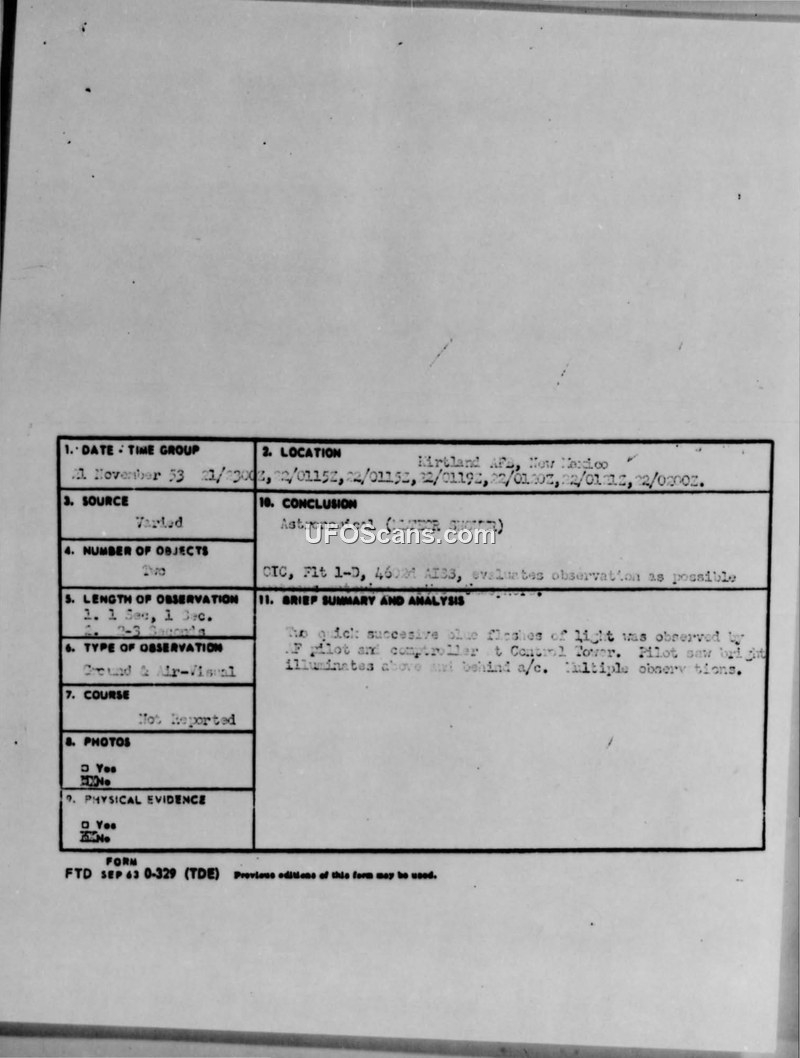 1. DATE - TIME GROUP
21 November 53 21/2300Z, 22/0115Z, 22/0115Z, 22/0119Z, 22/0120Z, 22/0121Z, 22/0200Z.
2. LOCATION
Kirtland AFB, New Mexico
3. SOURCE
Varied
10. CONCLUSION
Astronomical (METEOR SHOWER)
UFOScans.com
4. NUMBER OF OBJECTS
Two
CIC, Flt 1-D, AISS, evaluates observation as possible
5. LENGTH OF OBSERVATION
1. 1 Sec, 1 Sec.
2. 2-3 Seconds
11. BRIEF SUMMARY AND ANALYSIS
Two quick succesive blue flashes of light was observed by
AF pilot and comptroller at Control Tower. Pilot saw bright
illuminates above and behind a/c. Multiple observations.
6. TYPE OF OBSERVATION
Ground & Air-Visual
7. COURSE
Not Reported
8. PHOTOS
□ Yes
No
9. PHYSICAL EVIDENCE
□ Yes
No
FORM
FTD SEP 63 0-329 (TDE) Previous editions of this form may be used.